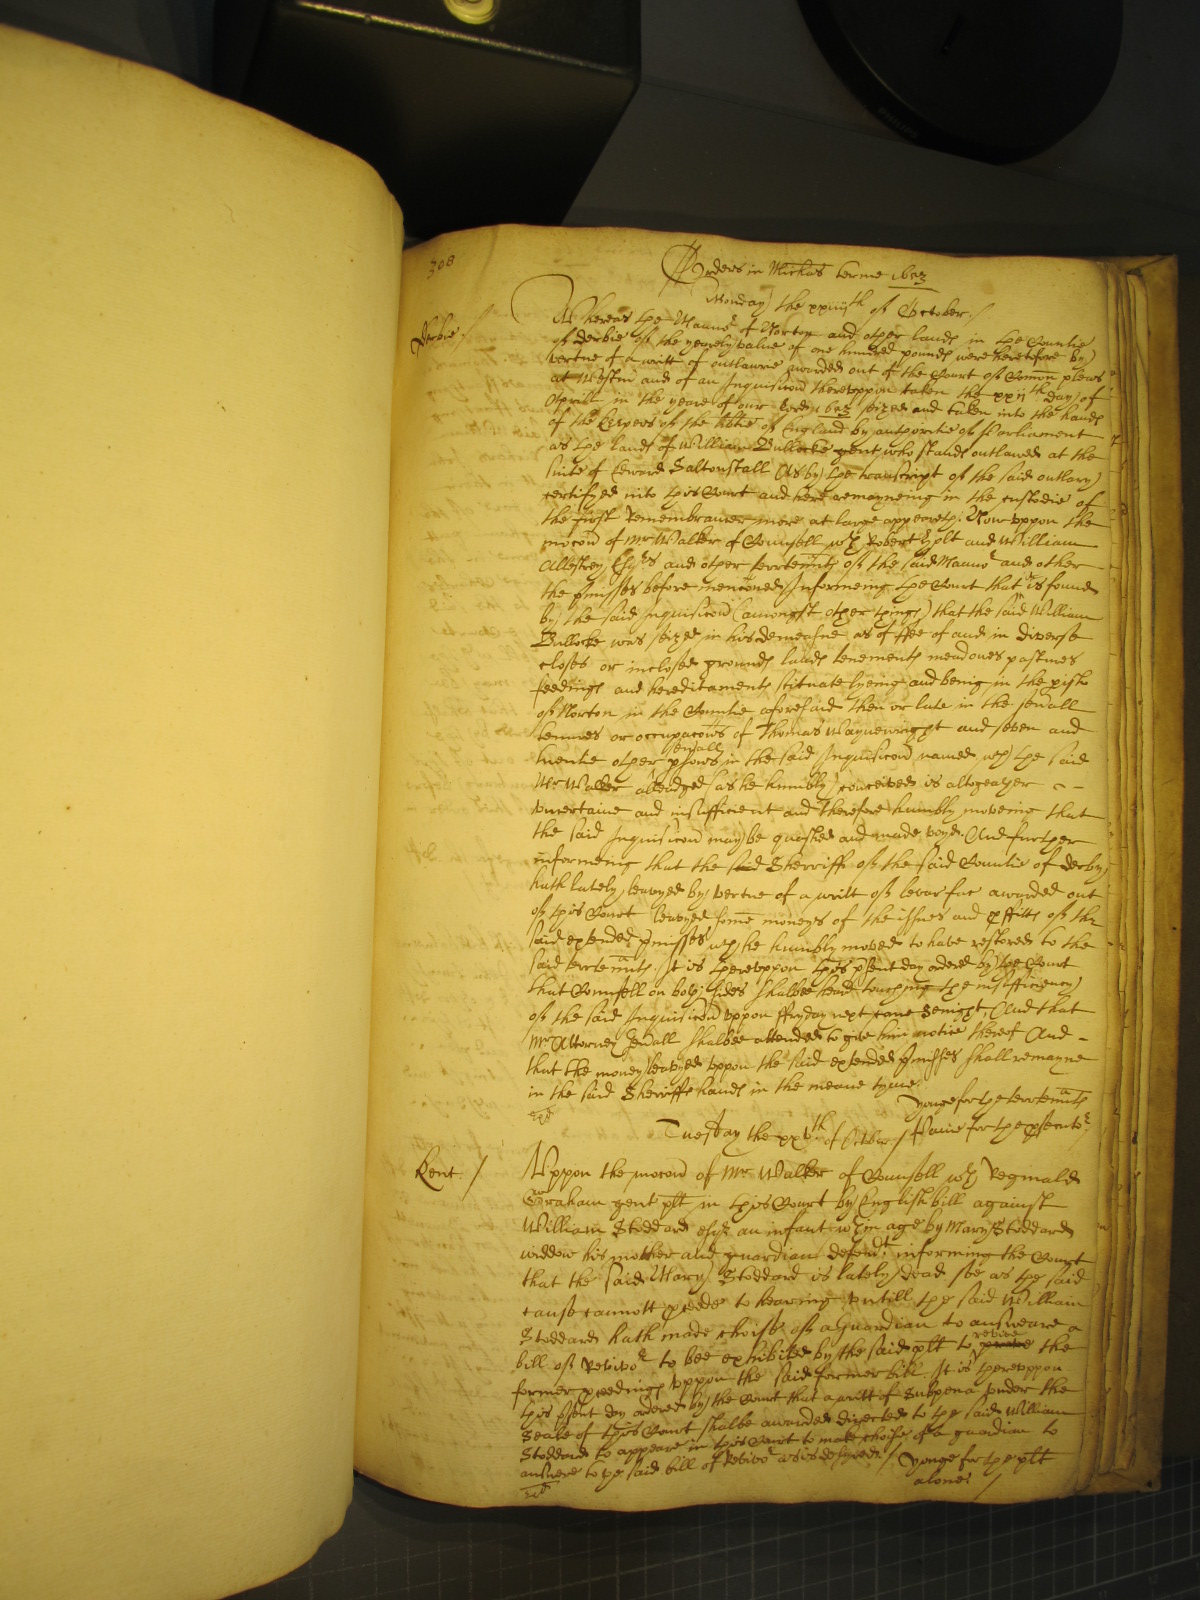 308
Orders in Michas terme 1653
Monday the xxiiijth of October /
Derbie /
Whereas the Mannor of Norton and other lands in the Countie
of Derbie of the yearely value of one hundred pounds were heretofore by
vertue of a writt of outlawrie awarded out of the Court of Comon pleas
at Westmr and of an Inquisicon thereuppon taken the xxijth day of
Aprill in the yeare of our Lord 1653 seized and taken into the hands
of the Keepers of the libtie of England by authoritie of Parliament
as the lands of William Bullocke gent who stands outlawed at the
suite of Edward Saltonstall As by the transcript of the said outlary
certifyed into this Court and here remayneing in the custodie of
the first Remembrancer more at large appeareth. Now uppon the
mocon of Mr Walker of Counsell wth Robert Holt and William
Allestrey Esqrs and other terrtennts of the said Mannor and other
the pmisses before menconed Informeing the Court that is found
by the said Inquisicon (amongst other things) that the said William
Bullocke was seized in his demeasne as of ffee of and in diverse
closes or inclosed grounds lands tenements meadowes pastures
feedings and hereditaments scituate lyeing and being in the pish
of Norton in the Countie aforesaid then or late in the seuall
tenures or occupacons of Thomas Waynewright and seven and
twentie other seuall psons in the said Inquisicon named wch the said
Mr Walker alleadged (as he humbly conceived) is altogeather
uncertaine and insufficient and therefore humbly moveing that
the said Inquisicon may be quashed and made voyd. And further
informeing that the said Sherriffe of the said Countie of Derby
hath lately leavyed by vertue of a writt of levar fac awarded out
of this Court leavyed some moneys of the issues and pffitts of the
said extended pmisses wch he humbly moved to have restored to the
said terrtennts. It is thereuppon this psent day ordered by the Court
that Counsell on both sides shalbee heard touching the insufficiency
of the said Inquisicon uppon ffryday next come Senight, And that
Mr Attorney Genall shalbee attended to give him notice thereof And
that the money leavyed uppon the said extended pmisses shall remayne
in the said Sherriffs hands in the meane tyme.
Yonge for the terrtennts
Tuesday the xxvth of October / ffane for the psecutor
Kent. /
Uppon the mocon of Mr Walker of Counsell wth Reginald
Graham gent plt in this Court by English bill against
William Stoddard esqr an infant wthin age by Mary Stoddard
widdow his mother and guardian defendt. informing the Court
that the said Mary Stoddard is lately dead soe as the said
cause cannott pceede to hearing untill the said William
Stoddard hath made choise of a Guardian to answeare a
bill of Revivor to bee exhibited by the said plt to revive the
former pceedings uppon the said former bill. It is thereuppon
this psent day ordered by the Court that a writt of Subpena under the
Seale of this Court shalbe awarded directed to the said William
Stoddard to appeare in this Court to make choise of a guardian to
answere to the said bill of Revivor as is desyred. / Yonge for the plt
alone /